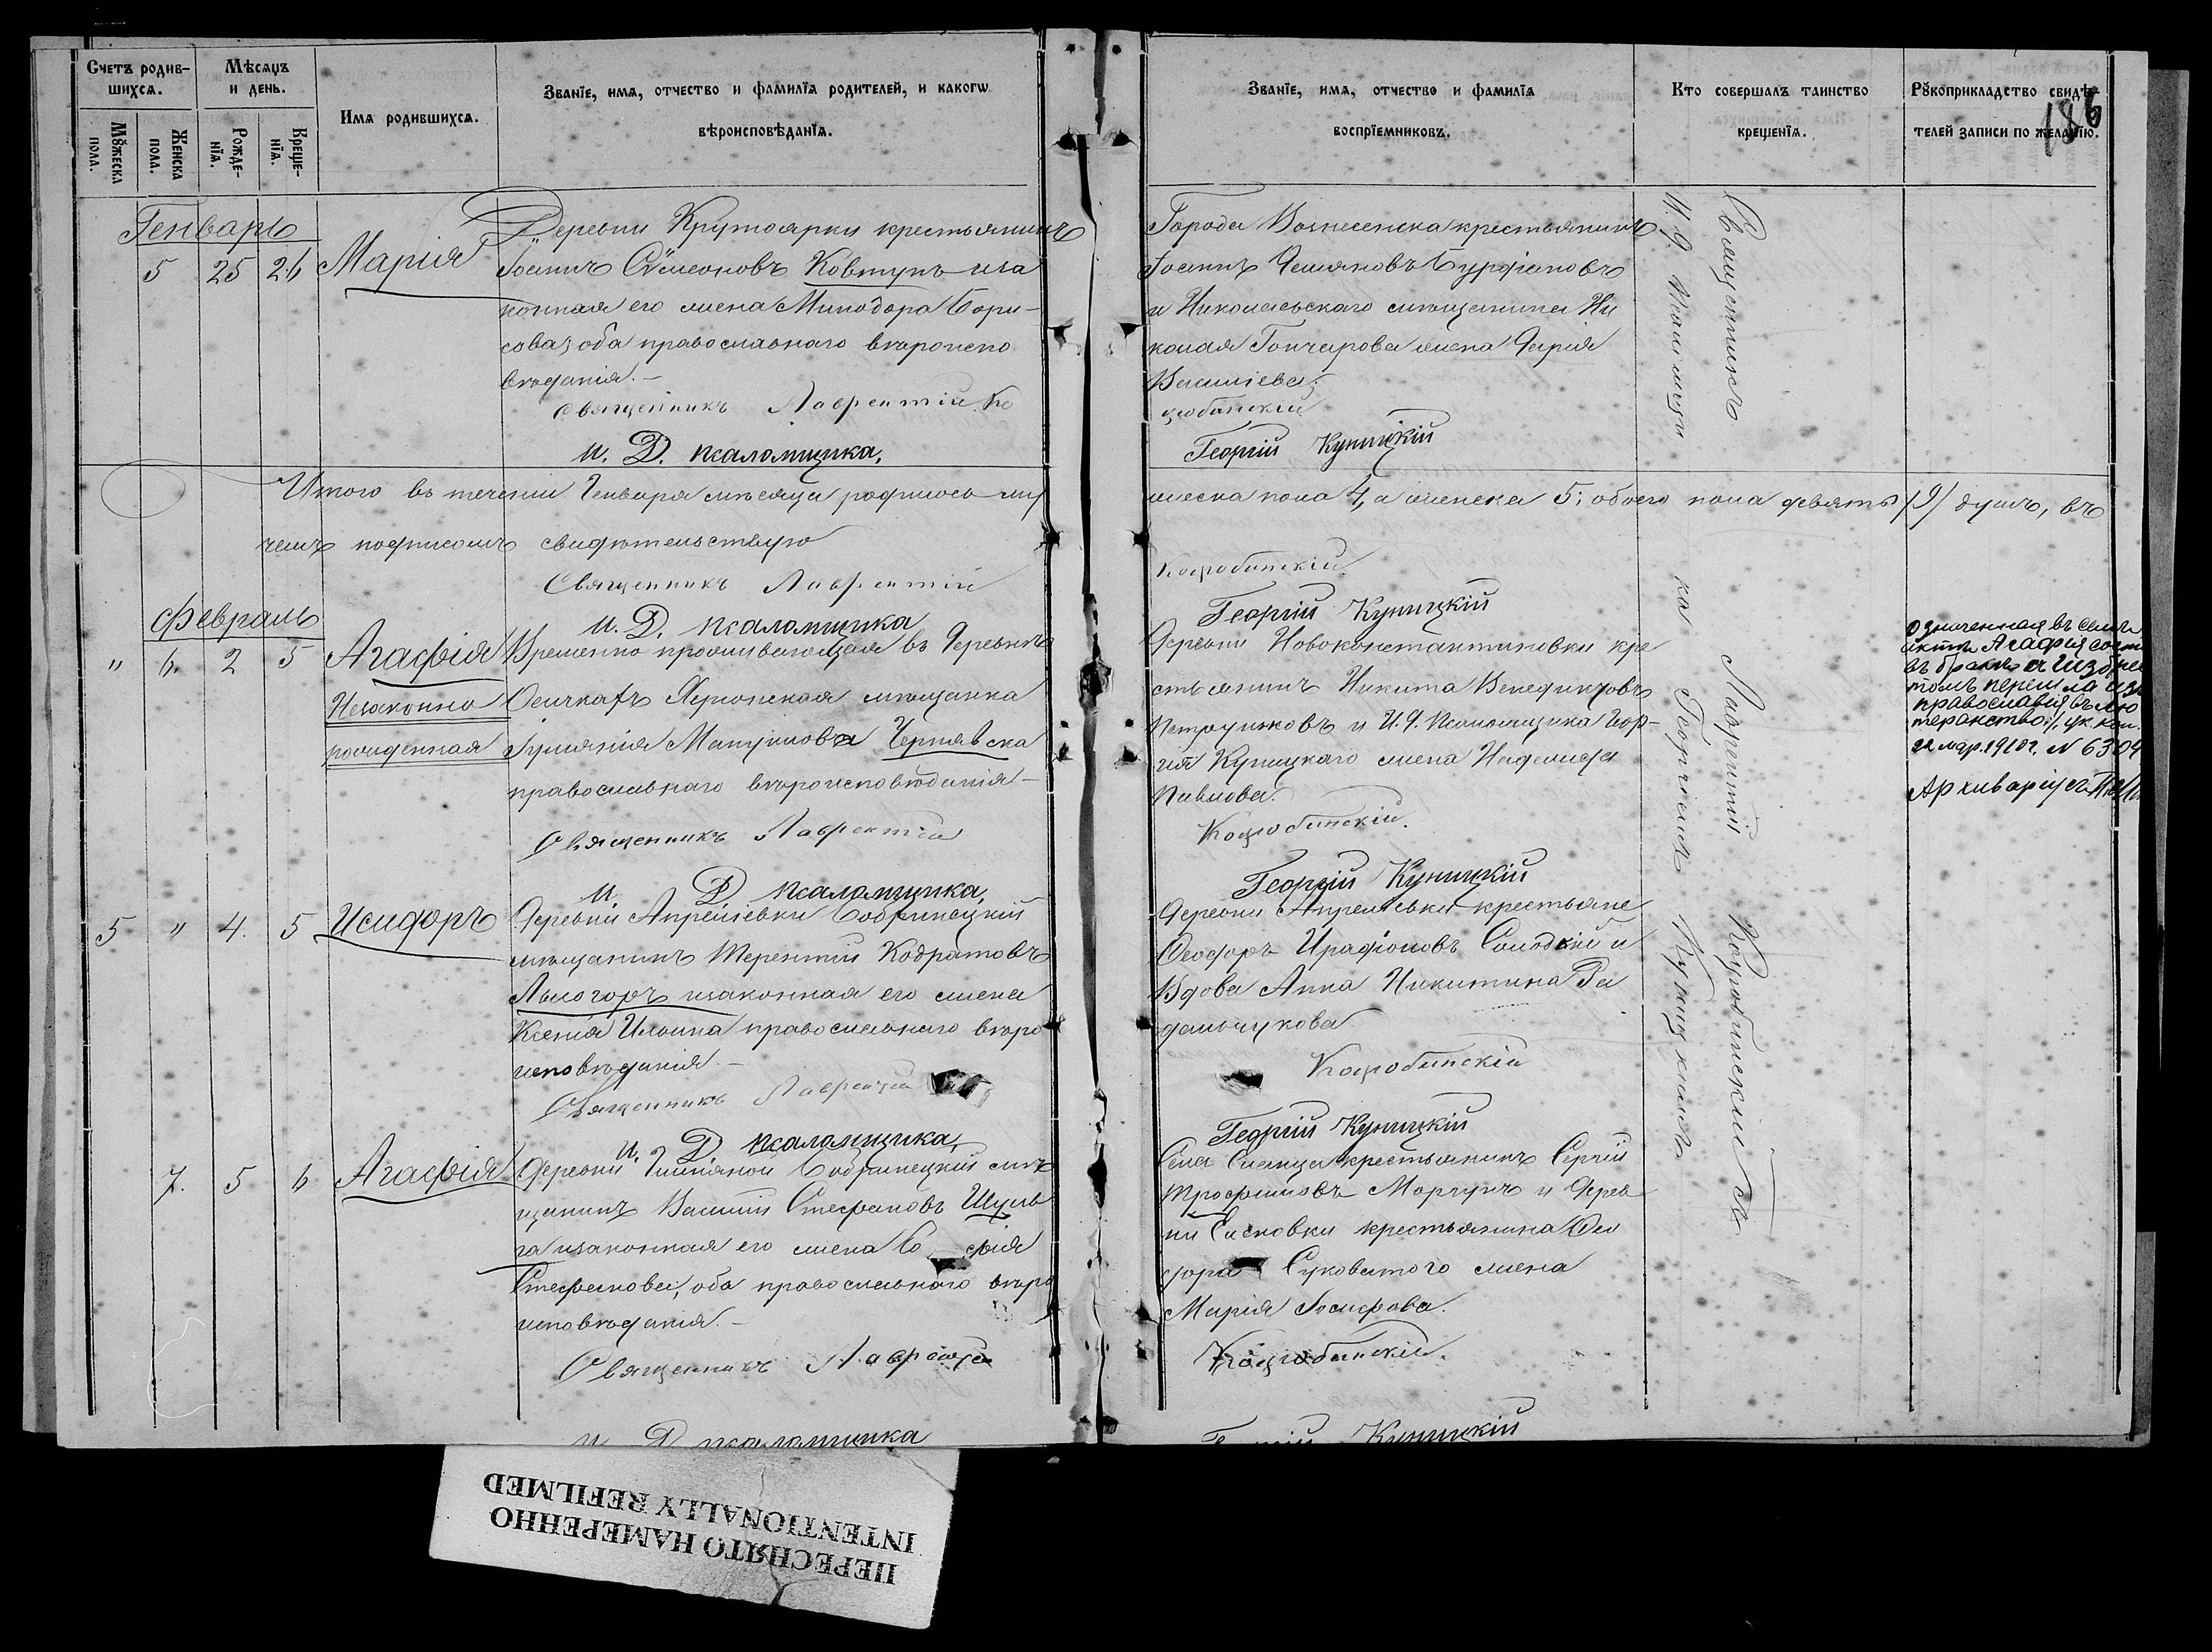 Счетъ родив-
шихся.
Мѣсяцъ
и день.
Мужеска
пола.
Женска
пола.
Рожде-
нїя.
Креще-
нїя.
Имя родившихся.
Званїе, имя, отчество и фамилїя родителей, и какогѡ
вѣроисповѣданїя.
Званїе, имя, отчество и фамилїя
воспрїемниковъ.
Кто совершалъ таинство
крещенїя.
Рукоприкладство свидѣ-
телей записи по желанїю.
186
Генварь
5 25 26 Марія
Деревни Крутоярки крестьянинъ
Іоаннъ Сѵмеоновъ Ковтунъ и за
конная его жена Минодора Бори-
сова, оба православнаго вѣроиспо
вѣданія.-
Священникъ Лаврентій Ко
И. Д. псаломщика,
Города Вознесенска крестьянинъ
Іоаннъ Демяновъ
и Николаевскаго мѣщанина Ни
колая Гончарова жена Дарія
Василіева.
цюбинскій
Георгій Куницкій
Итого въ теченіи Генваря мѣсяца родилось му
жеска пола 4, а женска 5; обоего пола девять (9) душъ, въ
чемъ подписомъ свидѣтельствую
Священникъ Лаврентій
Коцюбинскій
И. Д. псаломщика
Георгій Куницкій
Февраль
" 6. 2 5 Агафія
Незаконно
рожденная
Временно проживающая въ деревнѣ
Осичкахъ Херсонская мѣщанка
Іуліанія Мануилова Чернявска
православнаго вѣроисповѣданія-
Священникъ Лаврентій
И. Д. псаломщика,
Деревни Новоконстантиновки кре
стьянинъ Никита Венедиктовъ
и И. Д. Псаломщика Геор-
гія Куницкаго жена Надежда
Павлова.
Коцюбинскій.
Георгій Куницкій
означенная въ семъ
актѣ Агафія
въ бракѣ
перешла изъ
православія въ лю
теранство
22 мар. 1910г. N 6304
Архиваріусъ
5 " 4. 5 Исидоръ
Деревни Апрелевки Бобринецкій
мѣщанинъ Терентій Кодратовъ
Лысогоръ и законная его жена
Ксенія Ильина православнаго вѣро
исповѣданія.-
Священникъ Лаврентій
И. Д. псаломщика,
Деревни Апрелевки крестьяне
Ѳеодоръ Солодкій и
Вдова Анна Никитина Га
дамчукова
Коцюбинскій
Георгій Куницкій
7. 5 6 Агафія
Деревни Бобринецкій мѣ
щанинъ Василій Стефановъ Шуль
га и законная его жена Со фія
Стефанова, оба православнаго вѣро
исповѣданія.-
Священникъ Лаврентій
И. Д. псаломщика
Села крестьянинъ Сергій
Трофимовъ Моргунъ и Дерев
ни Сасновки крестьянина Ѳео
дора Суковатого жена
Марія Іосифова.
Коцюбинскій.
Георгій Куницкій
Священникъ Лаврентій Коцюбинскій съ
И. Д. Псаломщи
ка Георгіемъ Куницкимъ
ПЕРЕСНЯТО НАМЕРЕННО
INTENTIONALLY REFILMED